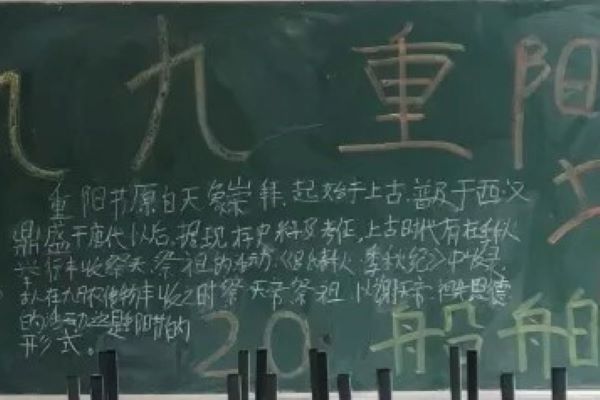 九九重阳
重阳节原自天象崇拜,起始于上古,普及于西汉
鼎盛于唐代以后,据现存史料及考证,上古时代有在季秋
举行丰收祭天、祭祖的活动。《吕氏春秋·季秋纪》中收录
古人在九月农作物丰收之时祭天帝祭祖,以谢天帝、祖先恩德
的活动,这是重阳节的
形式。
20船舶